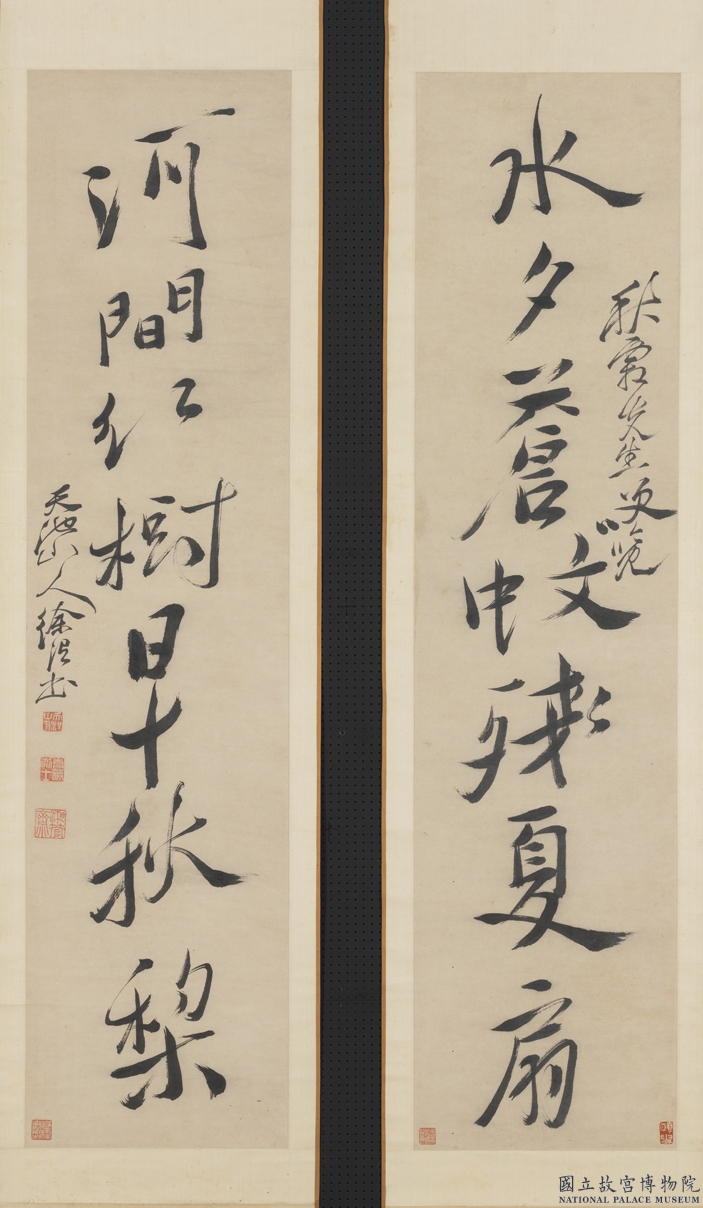 水夕蒼蚊殘夏扇
秋 先生 覽
河間紅樹早秋梨
天池山人徐渭書
國立故宮博物院
NATIONAL PALACE MUSEUM